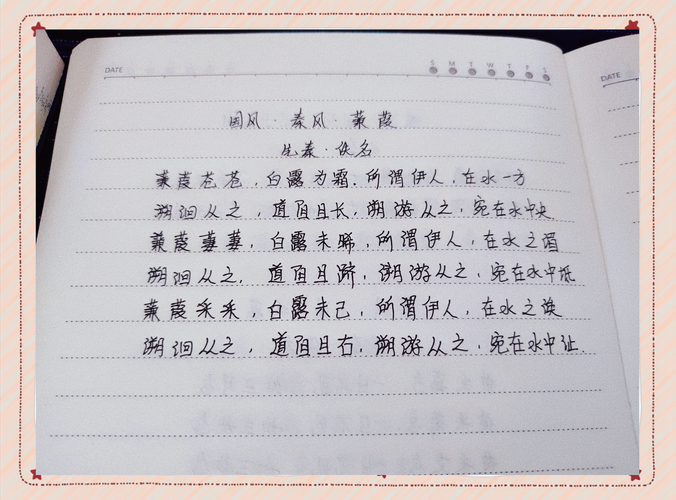 DATE S M T W T F S
DATE
国风·秦风·蒹葭
先秦·佚名
蒹葭苍苍，白露为霜，所谓伊人，在水一方
溯洄从之，道阻且长，溯游从之，宛在水中央
蒹葭萋萋，白露未晞，所谓伊人，在水之湄
溯洄从之，道阻且跻，溯游从之，宛在水中坻
蒹葭采采，白露未已，所谓伊人，在水之涘
溯洄从之，道阻且右，溯游从之，宛在水中沚